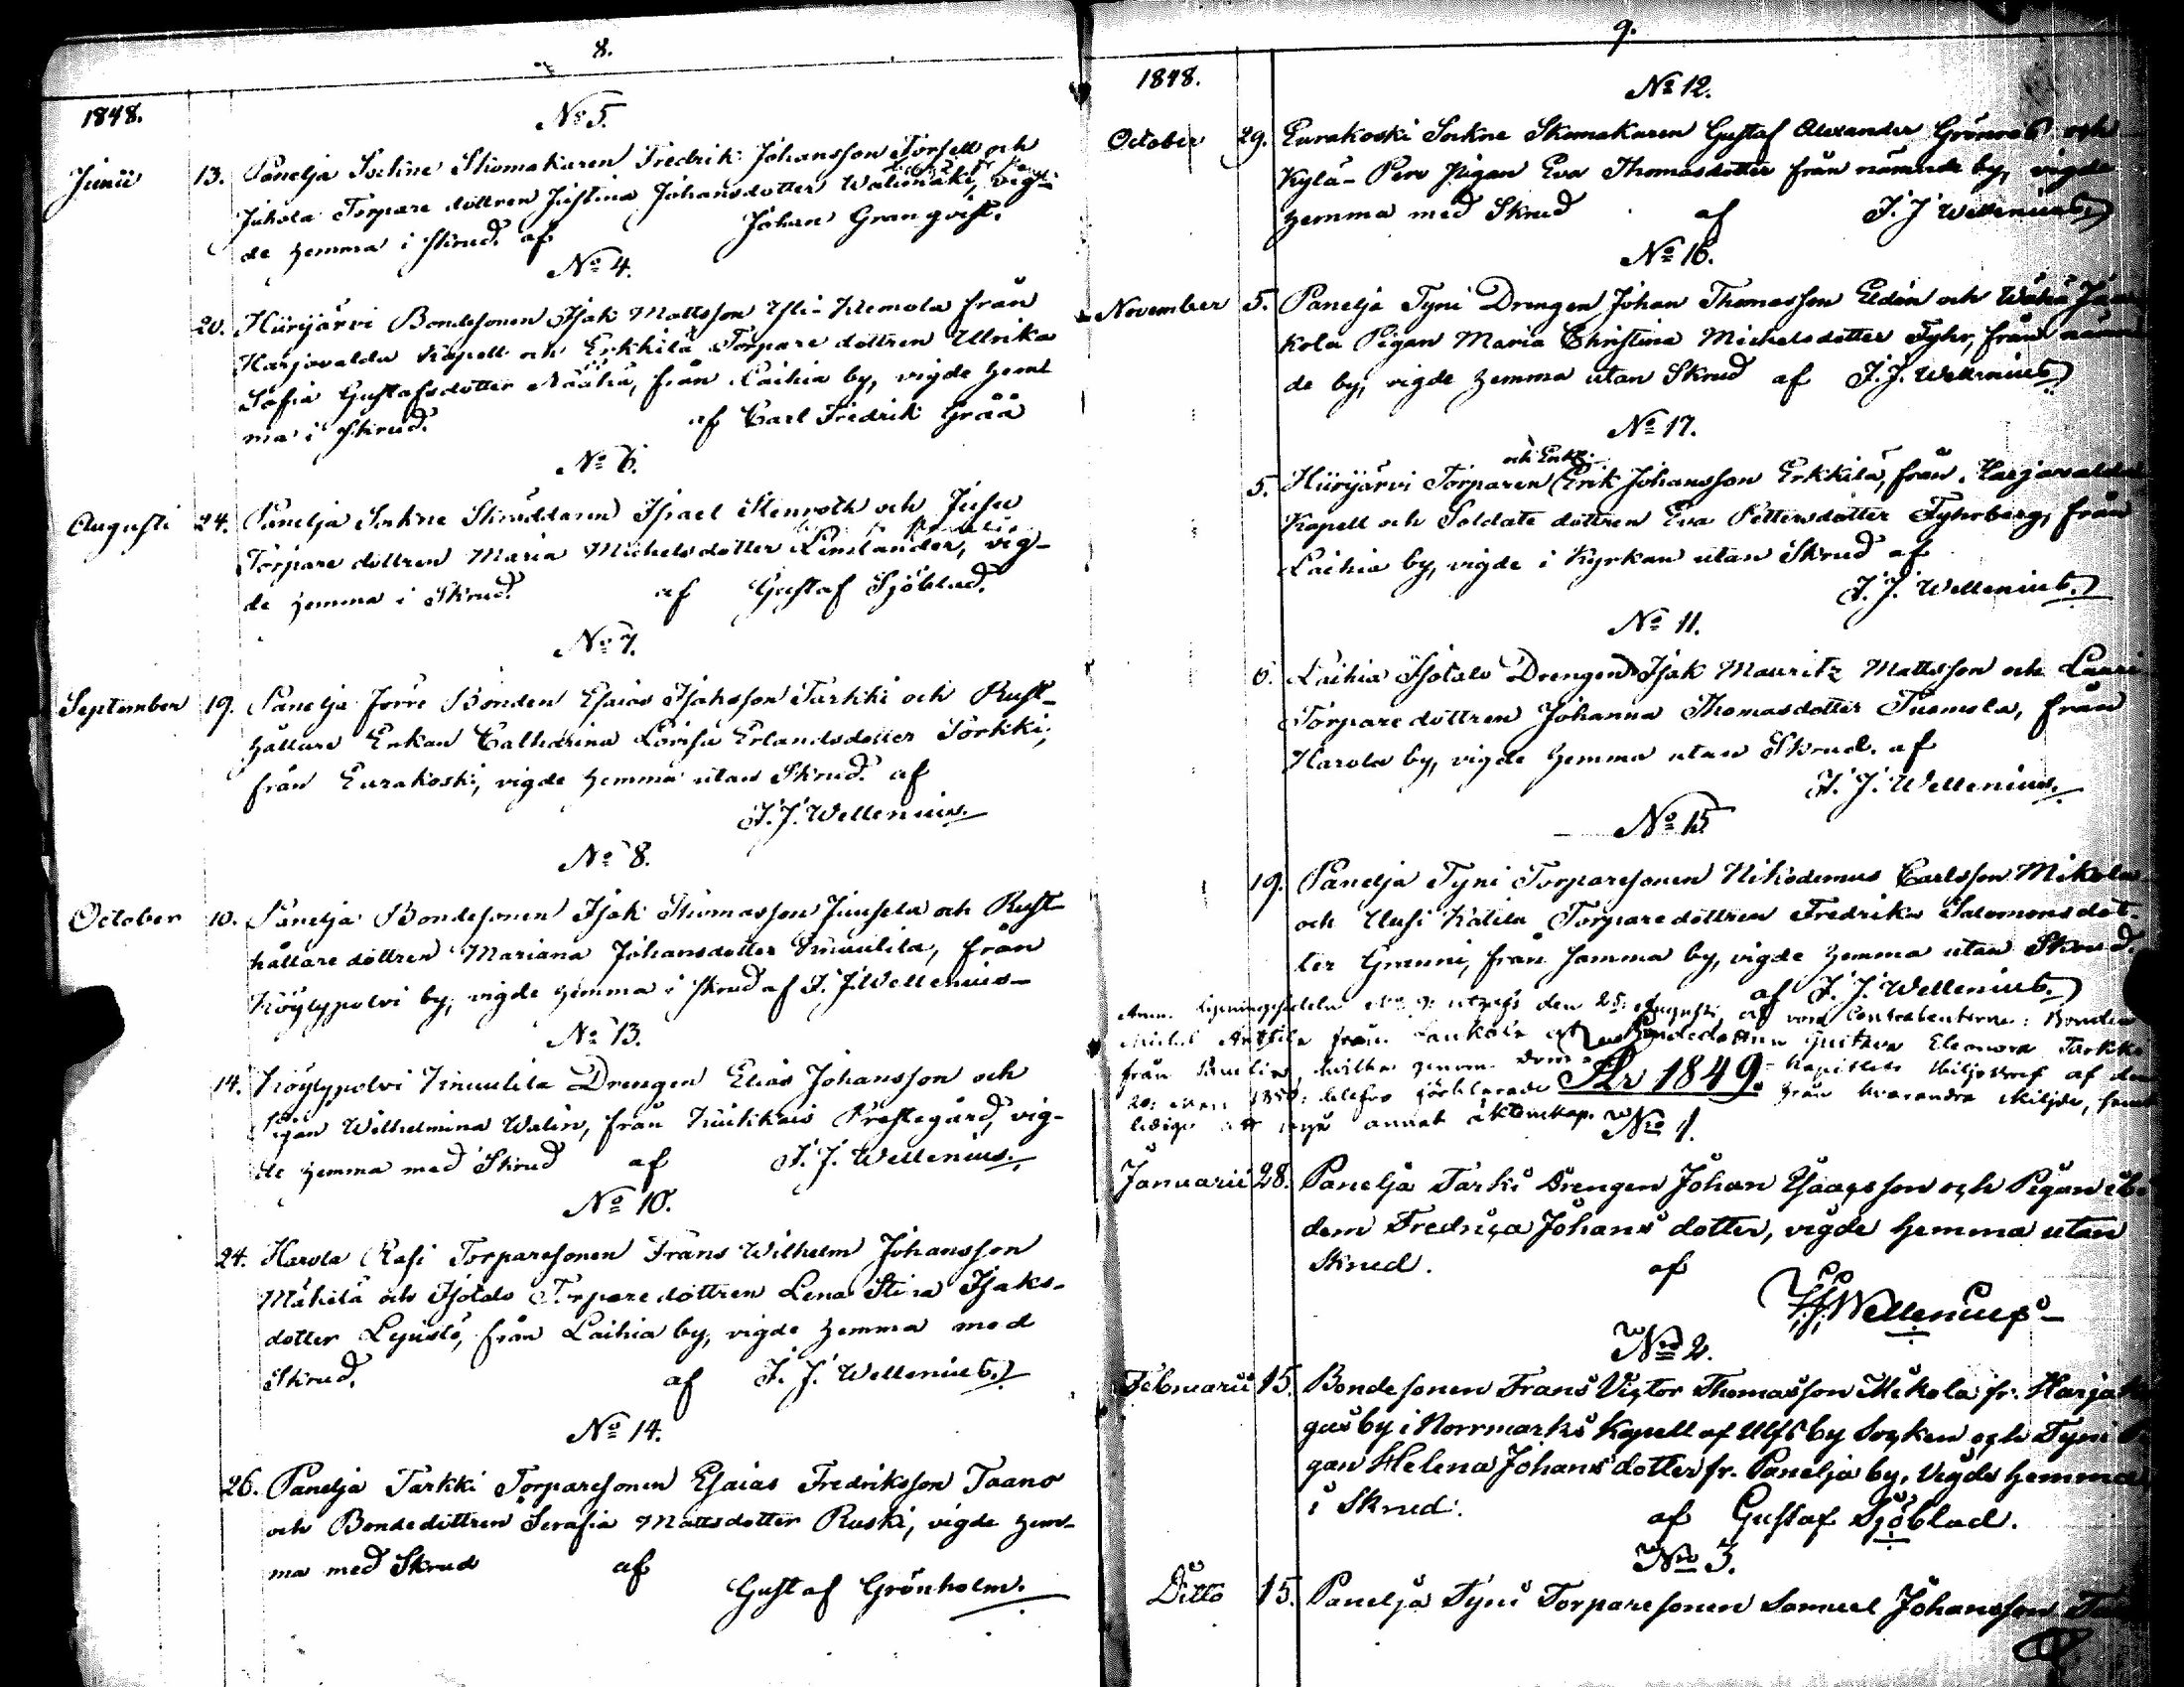 8.
1848.
No 5.
Junii 13. Panelja Sokne Skomakaren Fredrik Johansson Forsell och
Juhola Torpare dottren Justina Johansdotter Walimäki, vig-
de hemma i skrud. af Johan Granqvist.
No 4.
20. Hiirijärvi Bondesonen Isak Mattsson Yli-Klemola från
Harjavalda Kapell och Erkkilä Torpare dottren Ulrika
Sofia Gustafsdotter Näähä, från Laihia by, vigde hem-
ma i Skrud. af Carl Fredrik Grää
No 6.
Augusti 24. Panelja Sokne Skräddaren Israel Stenroth och Jusu
Torpare dottren Maria Michelsdotter Limlander, vig-
de hemma i Skrud. af Gustaf Sjöblad.
No 7.
September 19. Panelja Jorre Bonden Esaias Isaksson Tarkki och Rust-
hållare Enkan Catharina Lovisa Erlandsdotter Torkki,
från Eurakoski, vigde hemma utan Skrud. af
J. J. Wellenius.
No 8.
October 10. Panelja Bondesonen Isak Thomasson Juusela och Rust-
hållare dottren Mariana Johansdotter Kinuulila, från
Köylypolvi by, vigde hemma i skrud af J. J. Wellenius
No 13.
14. Köylypolvi Kinuulila Drengen Elias Johansson och
Pigan Wilhelmina Walin, från Kiukkais Prestegård, vig-
de hemma med Skrud af J. J. Wellenius.
No 10.
24. Harola Rasi Torparesonen Frans Wilhelm Johansson
Mäkelä och Isotalo Torpare dottren Lena Stina Isaks-
dotter Lejusto, från Laihia by, vigde hemma med
Skrud. af J. J. Wellenius.
No 14.
26. Panelja Tarkki Torparesonen Esaias Fredriksson Taano
och Bondedottren Serafia Mattsdotter Ruski, vigde hem-
ma med Skrud af
Gustaf Grönholm.
9.
1848.
No 12.
October 29. Eurakoski Sokne Skomakaren Gustaf Alexander Grönroos och
Kylä-Pero Pigan Eva Thomasdotter från nämnde by, vigde
hemma med Skrud af J. J. Wellenius.
No 16.
November 5. Panelja Tyni Drengen Johan Thomasson Eldén och Wähä Jaa-
kola Pigan Maria Christina Michelsdotter Fyhr, från nämn-
de by, vigde hemma utan Skrud af J. J. Wellenius
No 17.
och Enkl.
5. Hiirijärvi Torparen Erik Johansson Erkkilä, från Harjavalda
Kapell och Soldate dottren Eva Pettersdotter Fyhrberg, från
Laihia by, vigde i Kyrkan utan Skrud af
J. J. Wellenius.
No 11.
6. Laihia Isotalo Drengen Isak Mauritz Mattsson och Lauri
Torpare dottren Johanna Thomasdotter Tuomola, från
Harola by, vigde hemma utan Skrud. af
J. J. Wellenius.
No 15
19. Panelja Tyni Torparesonen Nikodemus Carlsson Mikola
och Uusi Kätilä Torpare dottren Fredrika Salomonsdot-
ter Granni, från samma by, vigde hemma utan Skrud.
af J. J. Wellenius.
Anm. Lysningssedeln No 9: uttogs den 25: Augusti, af vara Contrahenterne: Bonden
Michel Anttila från och Bondedottren Gustava Eleonora Tarkki
från Panelia, hvilka genom Dom- Kapitlets Skiljobref af den
20: 1850: blefvo förklarade från hvarandra skiljde, samt
lediga att ingå annat äktenskap.
År 1849.
No 1.
Januarii 28. Panelja Tarki Drengen Johan Esaagsson och Pigan ibi-
dem Fredrica Johansdotter, vigde hemma utan
Skrud. af
J. J. Wellenius
No 2.
Februarii 15. Bondesonen Frans Victor Thomasson Mikola fr. Harjakan-
gas by i Norrmarks Kapell af Ulfsby Socken och Tyni Pi-
gan Helena Johansdotter fr. Panelja by, Vigde hemma
i Skrud. af Gustaf Sjöblad.
No 3.
Ditto 15. Panelja Tyni Torparesonen Samuel Johansson